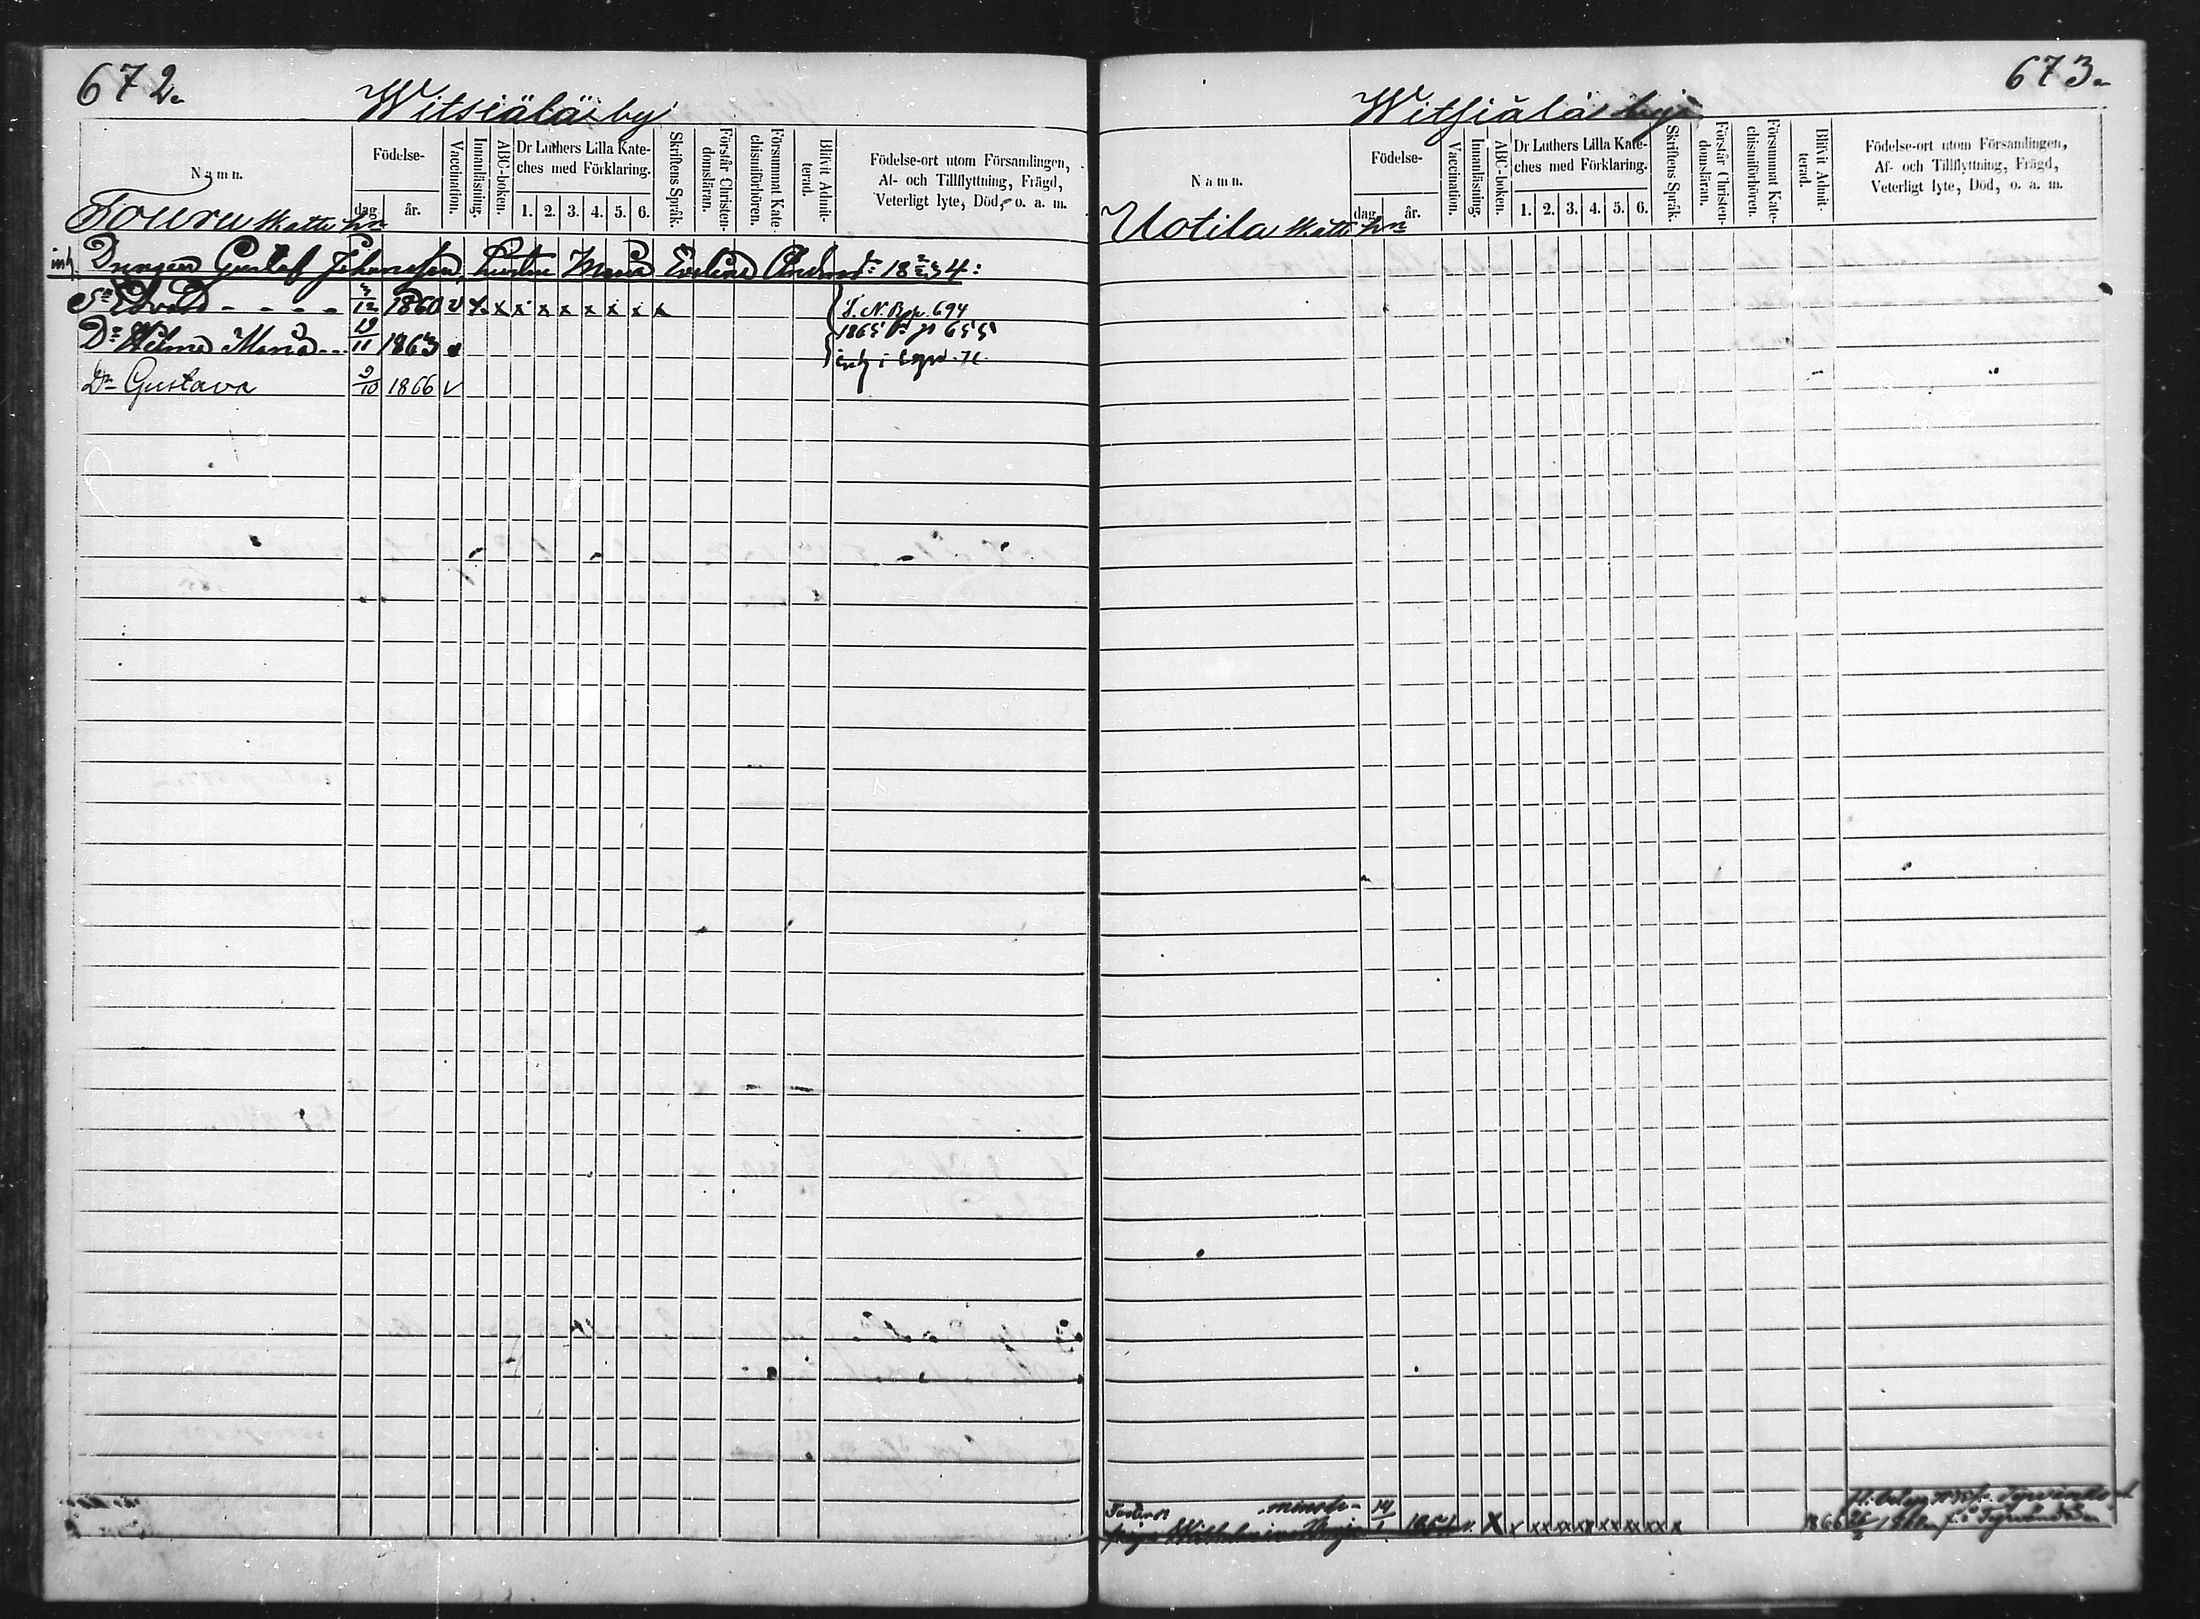 672.
Witsiälä by
Namn.
Födelse-
dag.
år.
Vaccination.
Innanläsning.
ABC-boken.
Dr Luthers Lilla Kate-
ches med Förklaring.
1. 2. 3. 4. 5. 6.
Skriftens Språk.
Förstår Christen-
domsläran.
Försummat Kate-
chismiförhören.
Blifvit Admit-
terad.
Födelse-ort utom Församlingen,
Af- och Tillflyttning, Frägd,
Veterligt lyte, Död, o. a. m.
Touru skatte hn
Drengen Gustaf Johansson, hustru Maria Evelina Andersdr 1834:
Sn Edvard - - - - 3/12 1860 v x x x x x x x x x
S. N. Bpp. 694
Dr Wilma Maria - - - 19/11 1863 v
1865 fr p 655
Dr Gustava 9/10 1866 v
673.
Witsiälä by
Namn.
Födelse-
dag.
år.
Vaccination.
Innanläsning.
ABC-boken.
Dr Luthers Lilla Kate-
ches med Förklaring.
1. 2. 3. 4. 5. 6.
Skriftens Språk.
Förstår Christen-
domsläran.
Försummat Kate-
chismiförhören.
Blifvit Admit-
terad.
Födelse-ort utom Församlingen,
Af- och Tillflyttning, Frägd,
Veterligt lyte, Död, o. a. m.
Uotila skatte hn
Wilhelmina 14/1 1851 v. X x x x x x x x x 1866